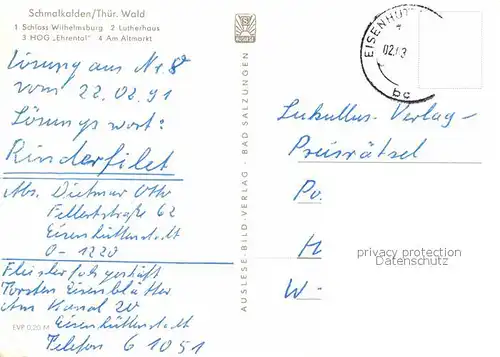 Schmalkalden/Thür. Wald
1 Schloss Wilhelmsburg 2 Lutherhaus
3 HOG „Ehrental" 4 Am Altmarkt
Lösung aus Nr. 8
vom 22.02.91
Lösungswort:
Rinderfilet
Abs. Dietmar Otto
Fellertstraße 62
Eisenhüttenstadt
O-1220
Fleischerfachgeschäft
Torsten Eisenblätter
Am Kanal 20
Eisenhüttenstadt
Telefon 61051
EVP 0,20 M
AUSLESE-BILD-VERLAG - BAD SALZUNGEN
EISENHÜT
02.03
bc
Lukullus-Verlag-
Preisrätsel
Po
H
W-
privacy protection
Datenschutz